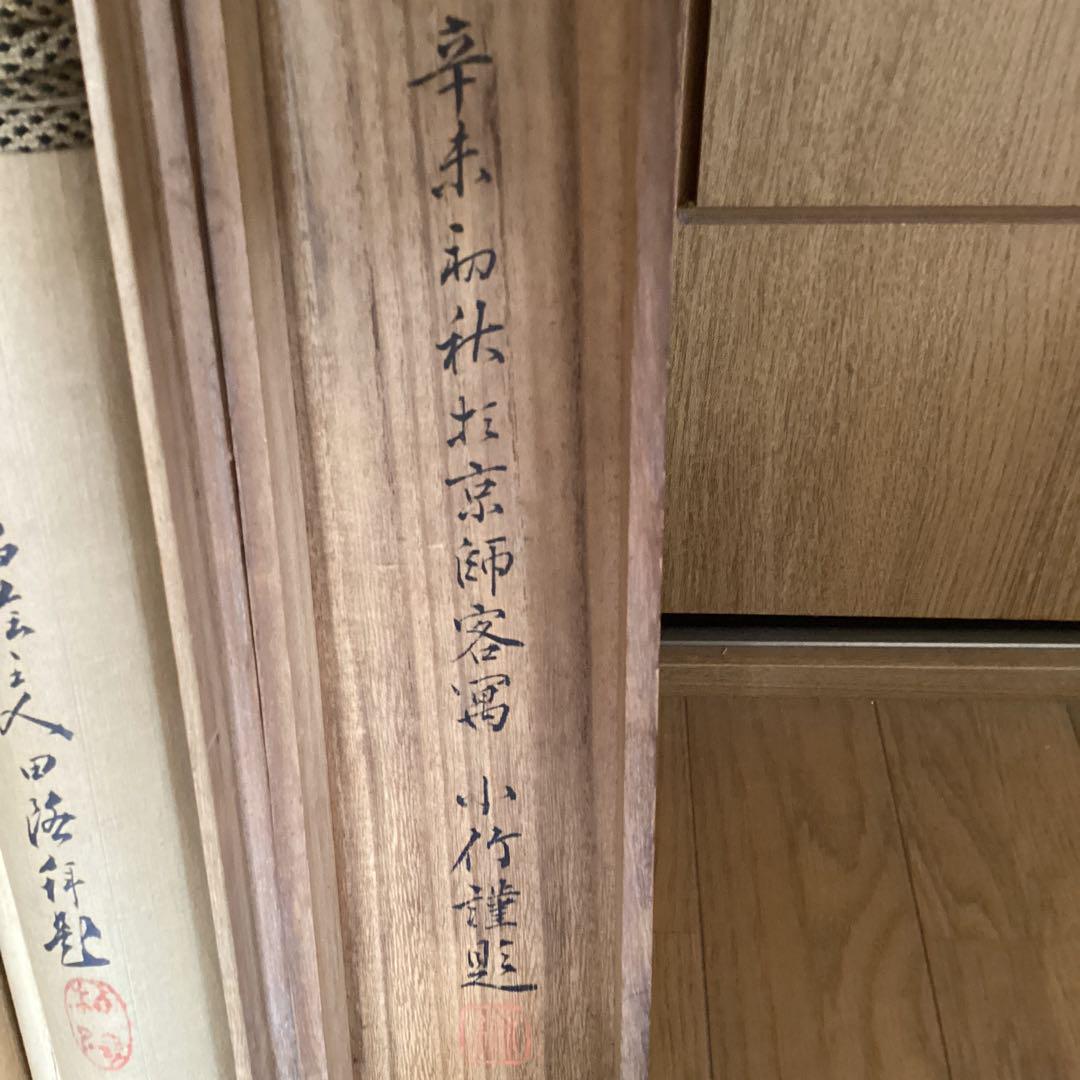 辛未初秋於京師客寓 小竹謹題
主人田
拜題